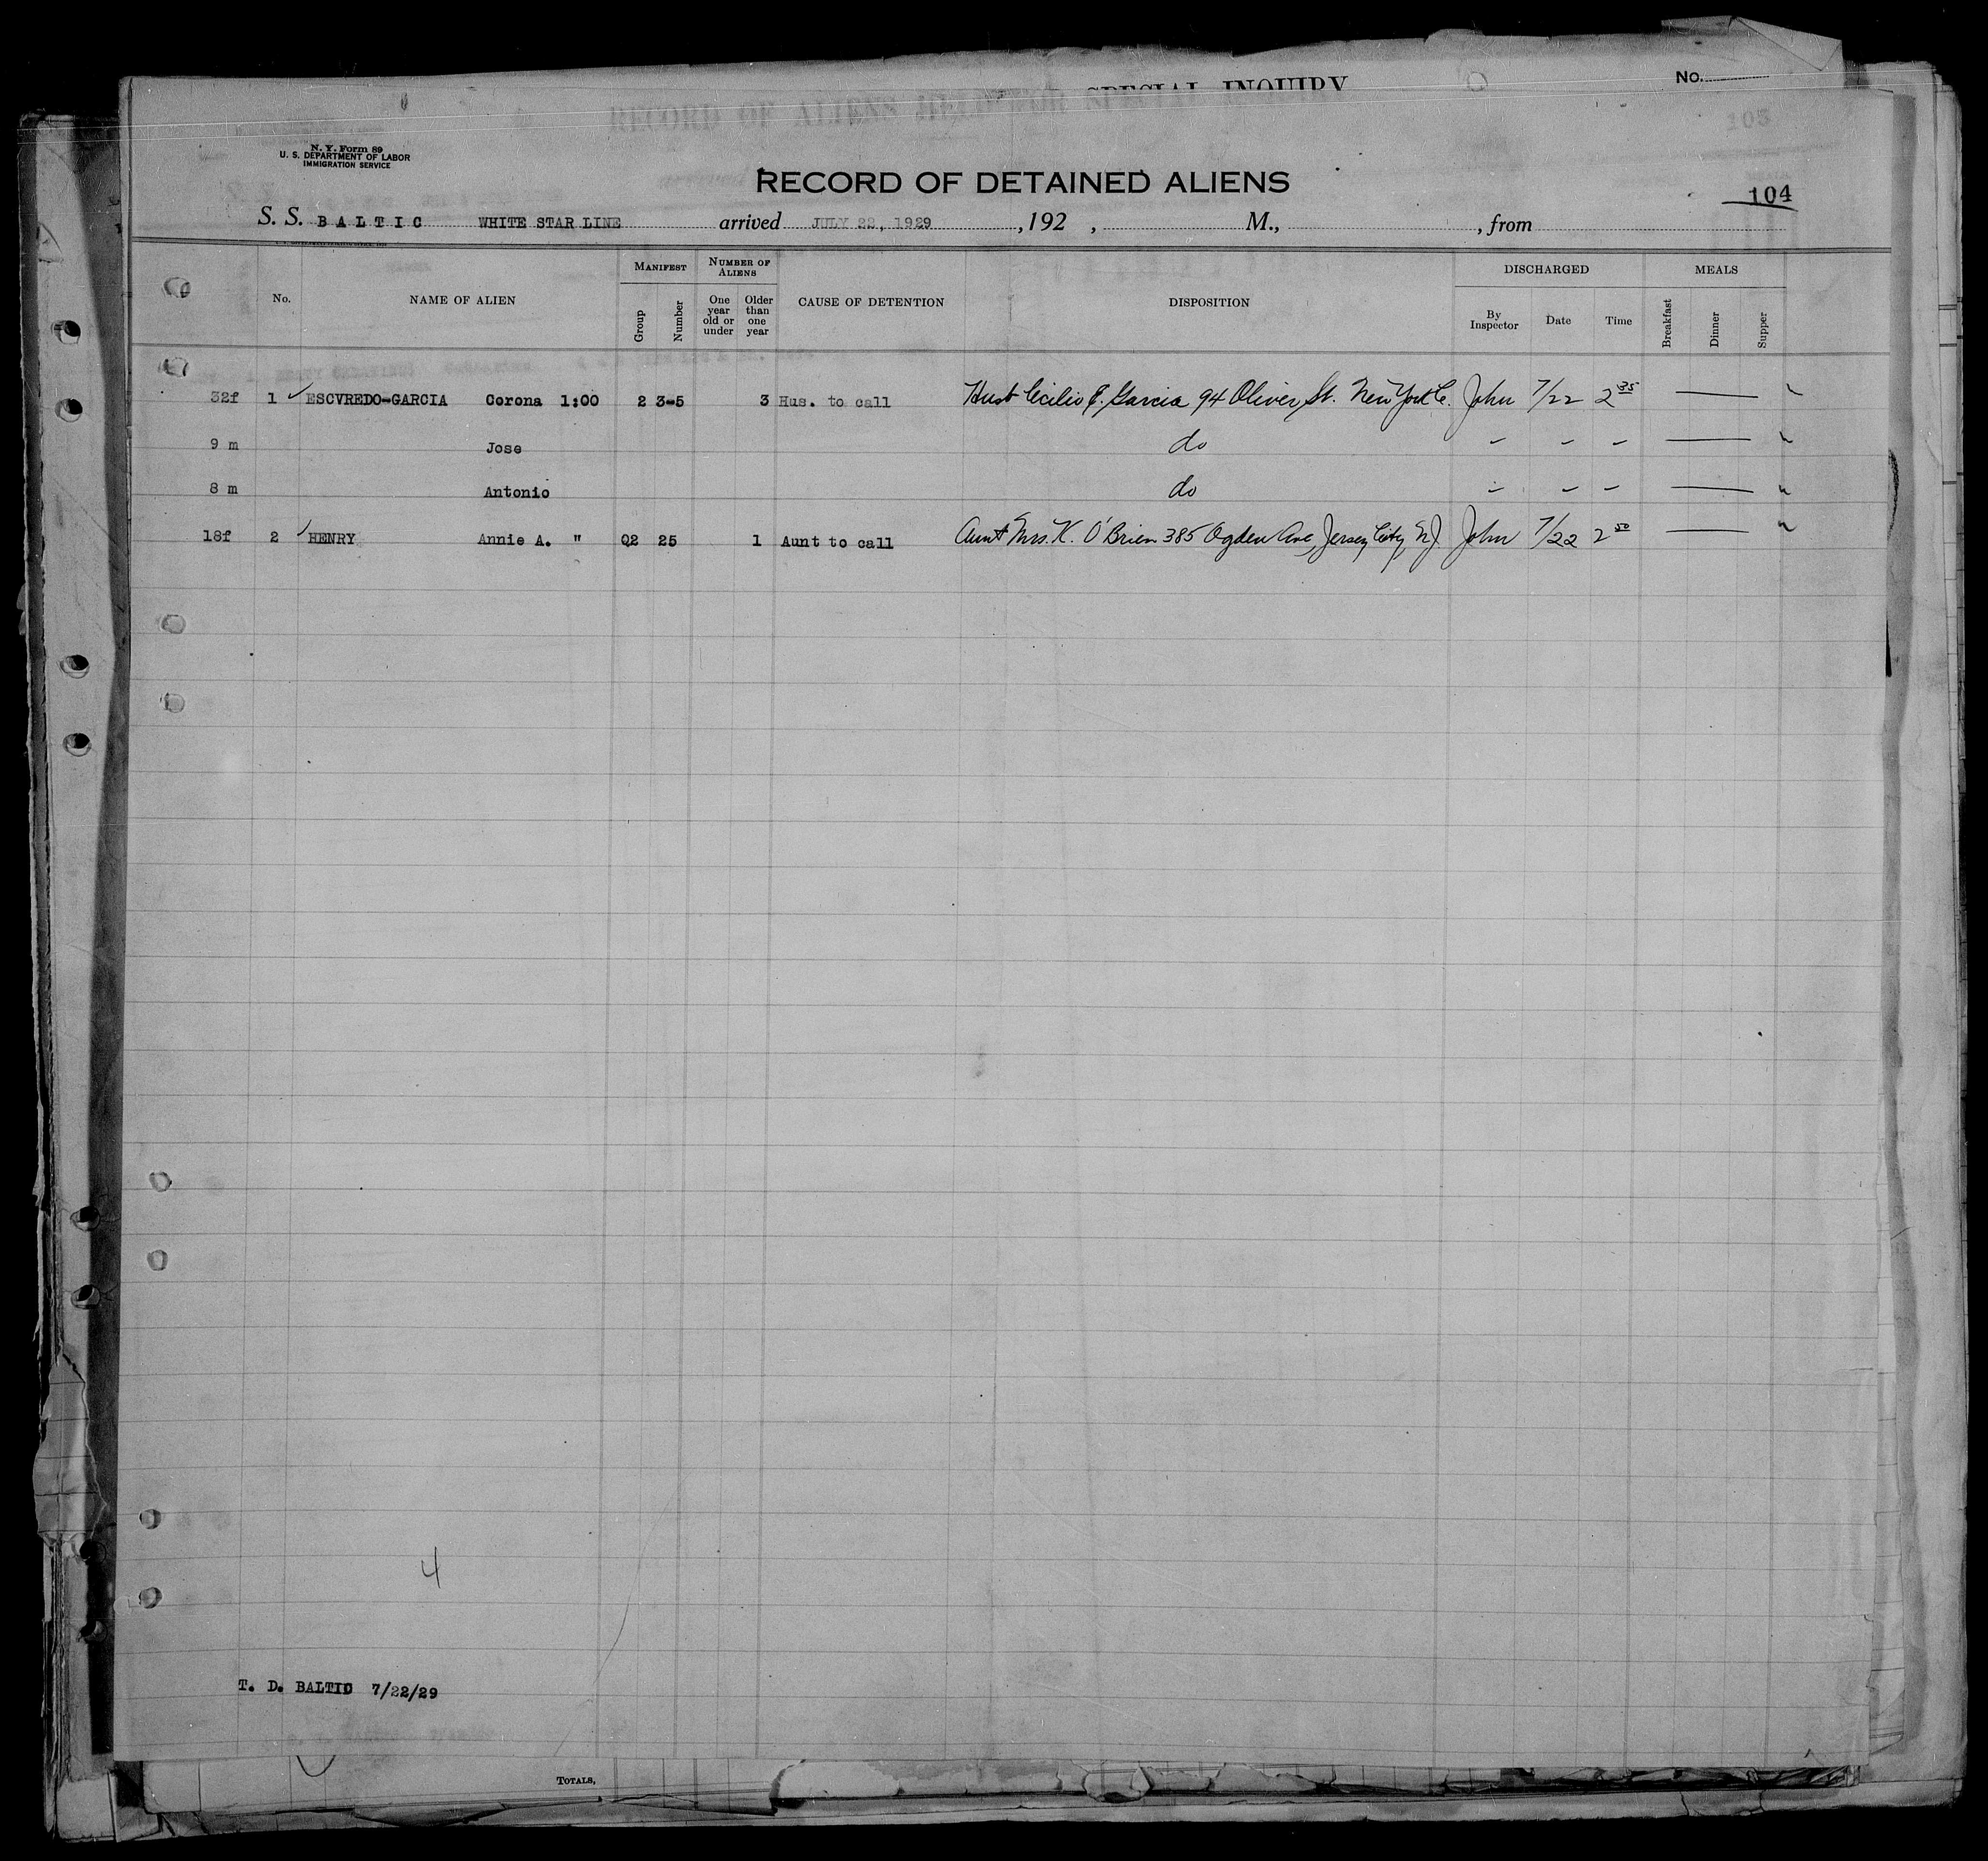 SPECIAL INQUIRY
No.
RECORD OF ALIENS HELD FOR SPECIAL INQUIRY
103
N. Y. Form 89
U. S. DEPARTMENT OF LABOR
IMMIGRATION SERVICE
RECORD OF DETAINED ALIENS
104
S. S. BALTIC WHITE STAR LINE arrived JULY 22, 1929 , 192 , M., , from
No. NAME OF ALIEN MANIFEST Group Number NUMBER OF ALIENS One year old or under Older than one year CAUSE OF DETENTION DISPOSITION DISCHARGED By Inspector Date Time MEALS Breakfast Dinner Supper
32f 1 ✓ ESCVREDO-GARCIA Corona 1:00 2 3-5 3 Hus. to call Husb Cicilio E. Garcia 94 Oliver St. New York C. John 7/22 2 35
9 m Jose do - - -
8 m Antonio do - - -
18f 2 ✓ HENRY Annie A. " Q2 25 1 Aunt to call Aunt Mrs. K. O'Brien 385 Ogden Ave, Jersey City N.J. John 7/22 2 50
4
T. D. BALTIC 7/22/29
TOTALS,